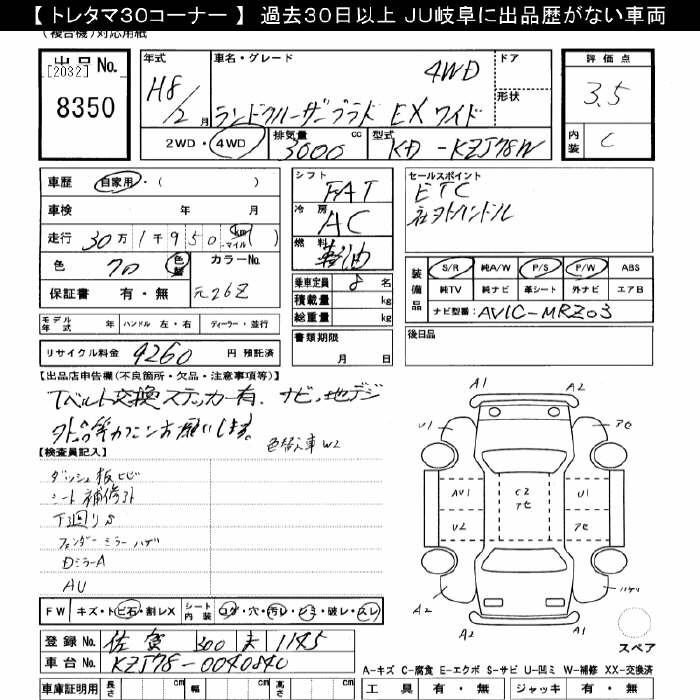 【 トレタマ30コーナー 】 過去30日以上 JU岐阜に出品歴がない車両
(複合機)対応用紙
出品 No.
[2032]
8350
年式
H8/2月
車名・グレード
ランドクルーザープラド EX ワイド
4WD
ドア
形状
2WD・4WD
排気量 3000 cc
型式 KD-KZJ78W
評価点
3.5
内装 C
車歴 自家用・( )
車検 年 月
走行 30万1千950 km マイル ( )
色 70 色替
カラーNo.
元26Z
保証書 有・無
シフト FAT
冷房 AC
燃料 軽油
乗車定員 8 名
積載量 kg
総重量 kg
書類期限
月 日
セールスポイント
ETC
社外ハンドル
装備品
S/R 純A/W P/S P/W ABS
純TV 純ナビ 革シート 外ナビ エアB
ナビ型番: AVIC-MRZ03
後日品
モデル年式 年 ハンドル 左・右 ディーラー・並行
リサイクル料金 9260 円 預託済
【出品店申告欄(不良箇所・欠品・注意事項等)】
Tベルト交換ステッカー有、ナビ、地デジ
色替人車 W2
【検査員記入】
ダッシュ板ヒビ
シート補修外
下廻りS
フェンダーミラーハゲ
DミラーA
AU
A1
A2
U1
アセ
AU1
C2
アセ
U1
U2
アセ
A2
ハゲ
A1
A2
スペア
FW キズ・トビ石・割レX
シート内装 コゲ・穴・汚レ・シミ・破レ・スレ
登録No. 佐賀 300 1145
車台No. KZJ78-0040840
車庫証明用 長さ cm 幅 cm 高さ cm
A-キズ C-腐食 E-エクボ S-サビ U-凹ミ W-補修 XX-交換済
工具 有・無 ジャッキ 有・無